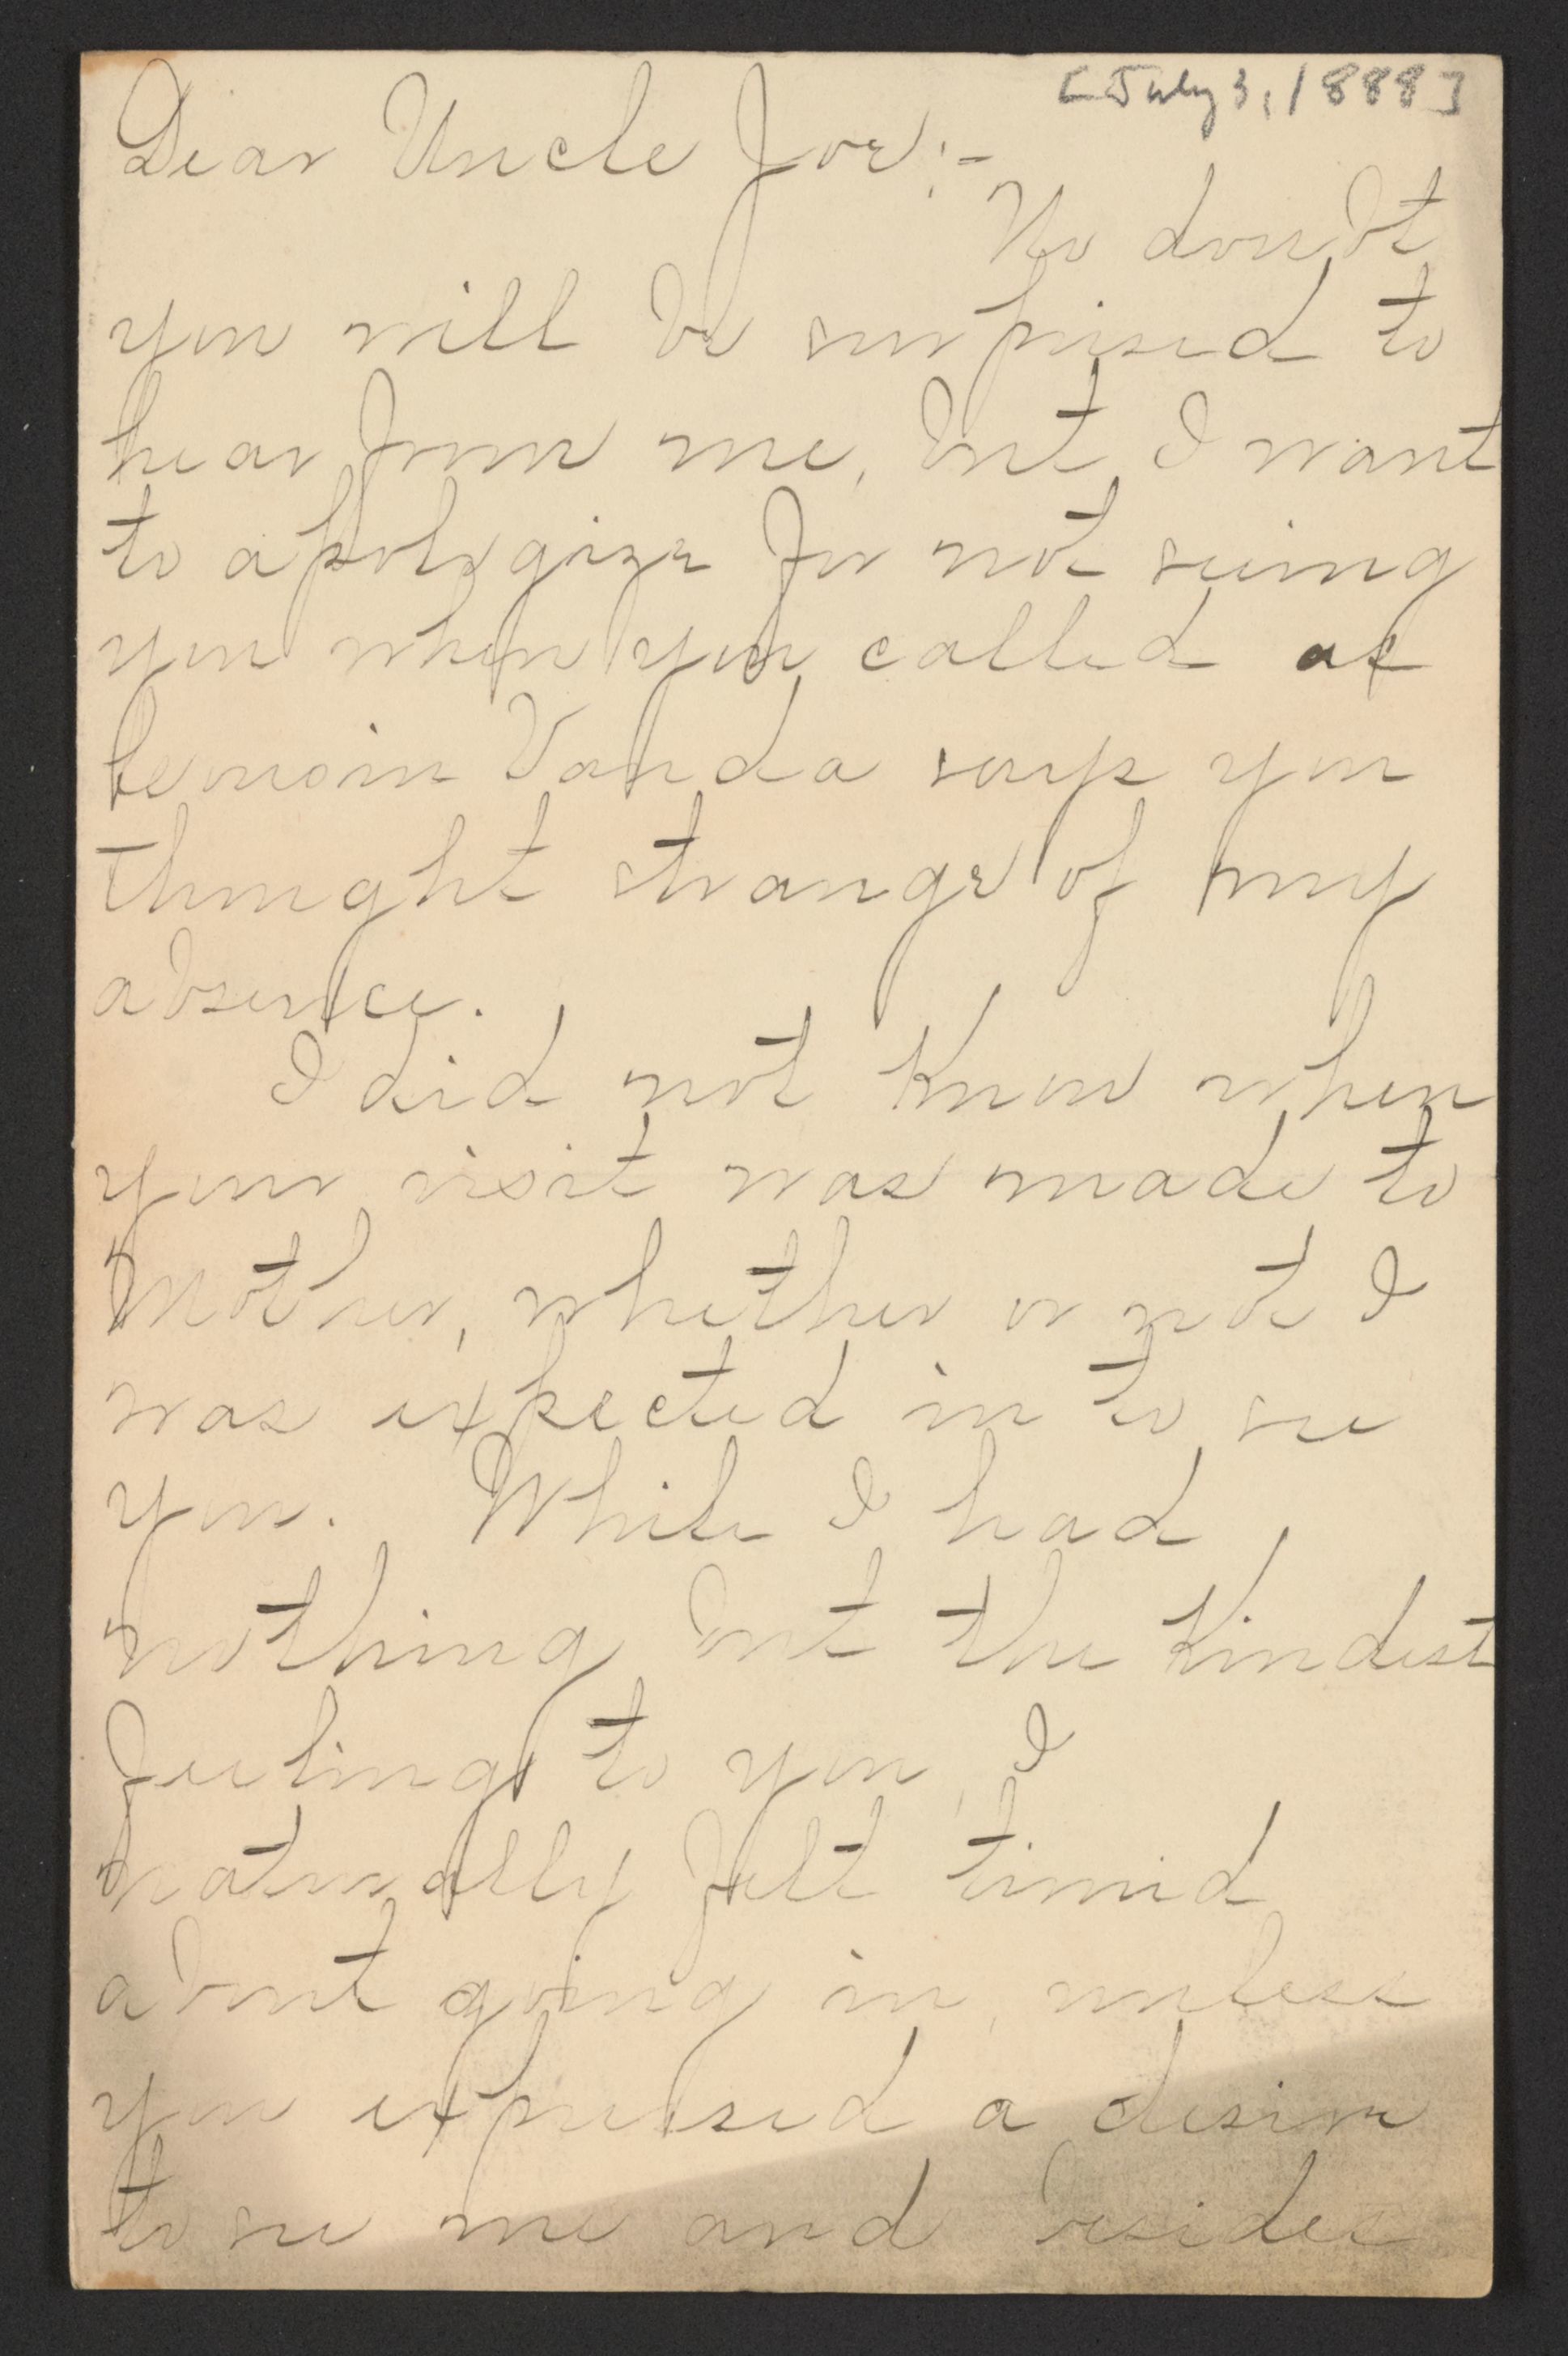 [July 3, 1888]
Dear Uncle Joe:-
No doubt
you will be surprised to
hear from me, but I want
to apologize for not seeing
you when you called as
Cousin Vanda says you
thought strange of my
absence.
I did not know when
your visit was made to
Mother, whether or not I
was expected in to see
you. While I had
nothing but the kindest
feelings to you, I
naturally felt timid
about going in, unless
you expressed a desire
to see me and besides